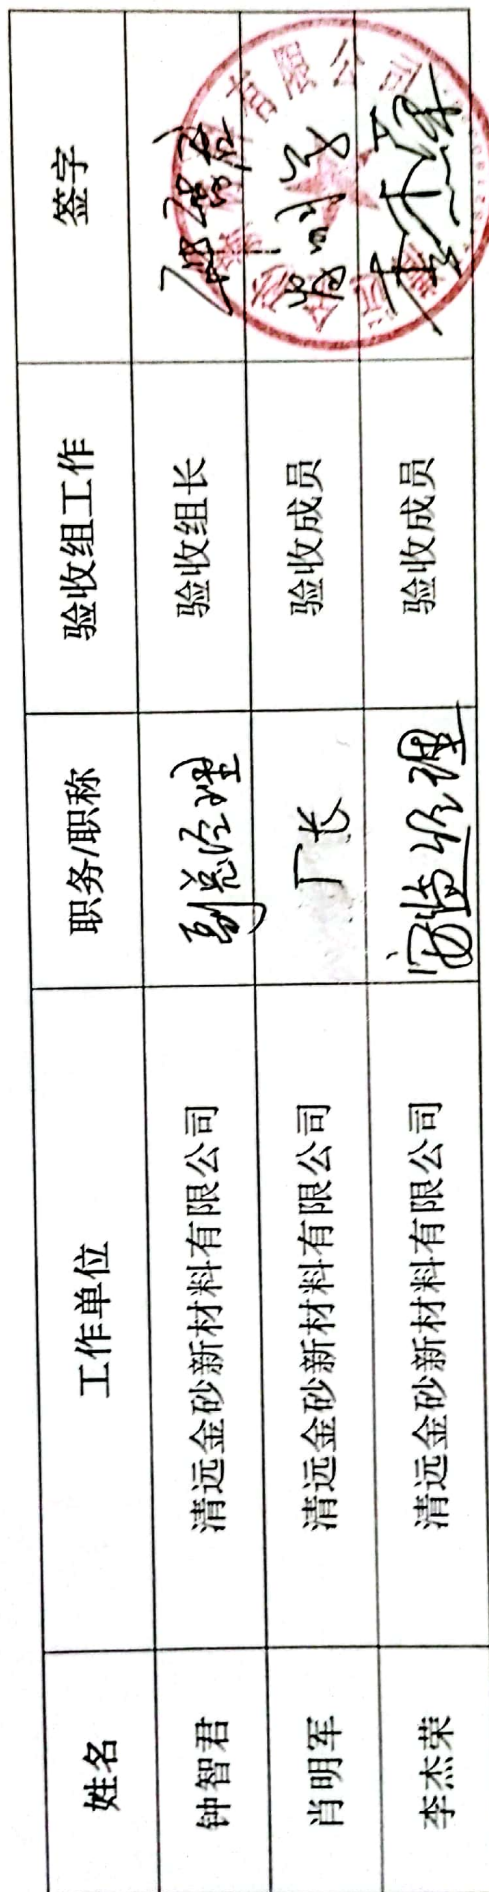 姓名 工作单位 职务/职称 验收组工作 签字
钟智君 清远金砂新材料有限公司 副总经理 验收组长
肖明军 清远金砂新材料有限公司 厂长 验收成员
李杰荣 清远金砂新材料有限公司 经理 验收成员
有限公司